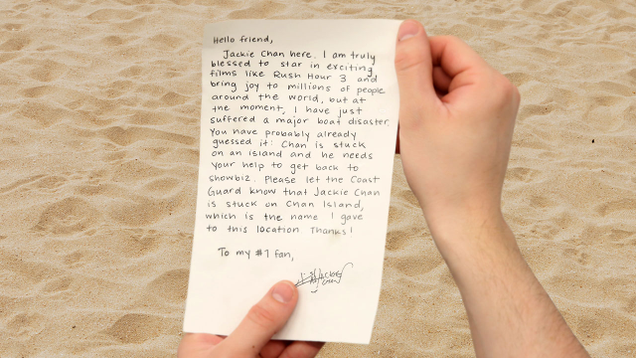 Hello friend,
Jackie Chan here. I am truly
blessed to star in exciting
films like Rush Hour 3 and
bring joy to millions of people
around the world, but at
the moment, I have just
suffered a major boat disaster.
You have probably already
guessed it: Chan is stuck
on an island and he needs
your help to get back to
showbiz. Please let the Coast
Guard know that Jackie Chan
is stuck on Chan Island,
which is the name I gave
to this location Thanks!
To my #1 fan,